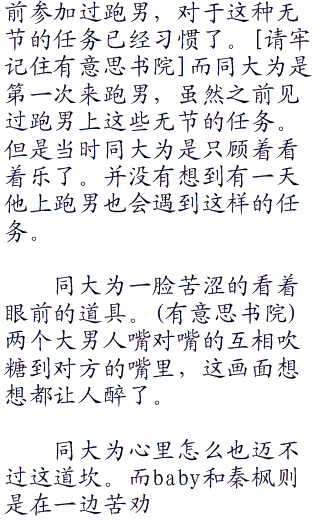 前参加过跑男，对于这种无
节的任务已经习惯了。[请牢
记住有意思书院]而同大为是
第一次来跑男，虽然之前见
过跑男上这些无节的任务。
但是当时同大为是只顾着看
着乐了。并没有想到有一天
他上跑男也会遇到这样的任
务。
同大为一脸苦涩的看着
眼前的道具。(有意思书院)
两个大男人嘴对嘴的互相吹
糖到对方的嘴里，这画面想
想都让人醉了。
同大为心里怎么也迈不
过这道坎。而baby和秦枫则
是在一边苦劝